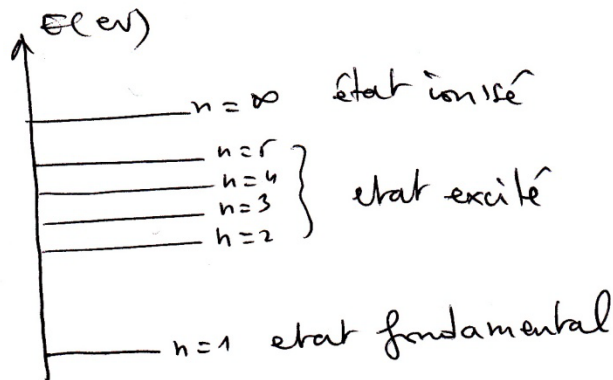 E(eV)
n = ∞ état ionisé
n = 5
n = 4
n = 3
n = 2
etat excité
n = 1 etat fondamental